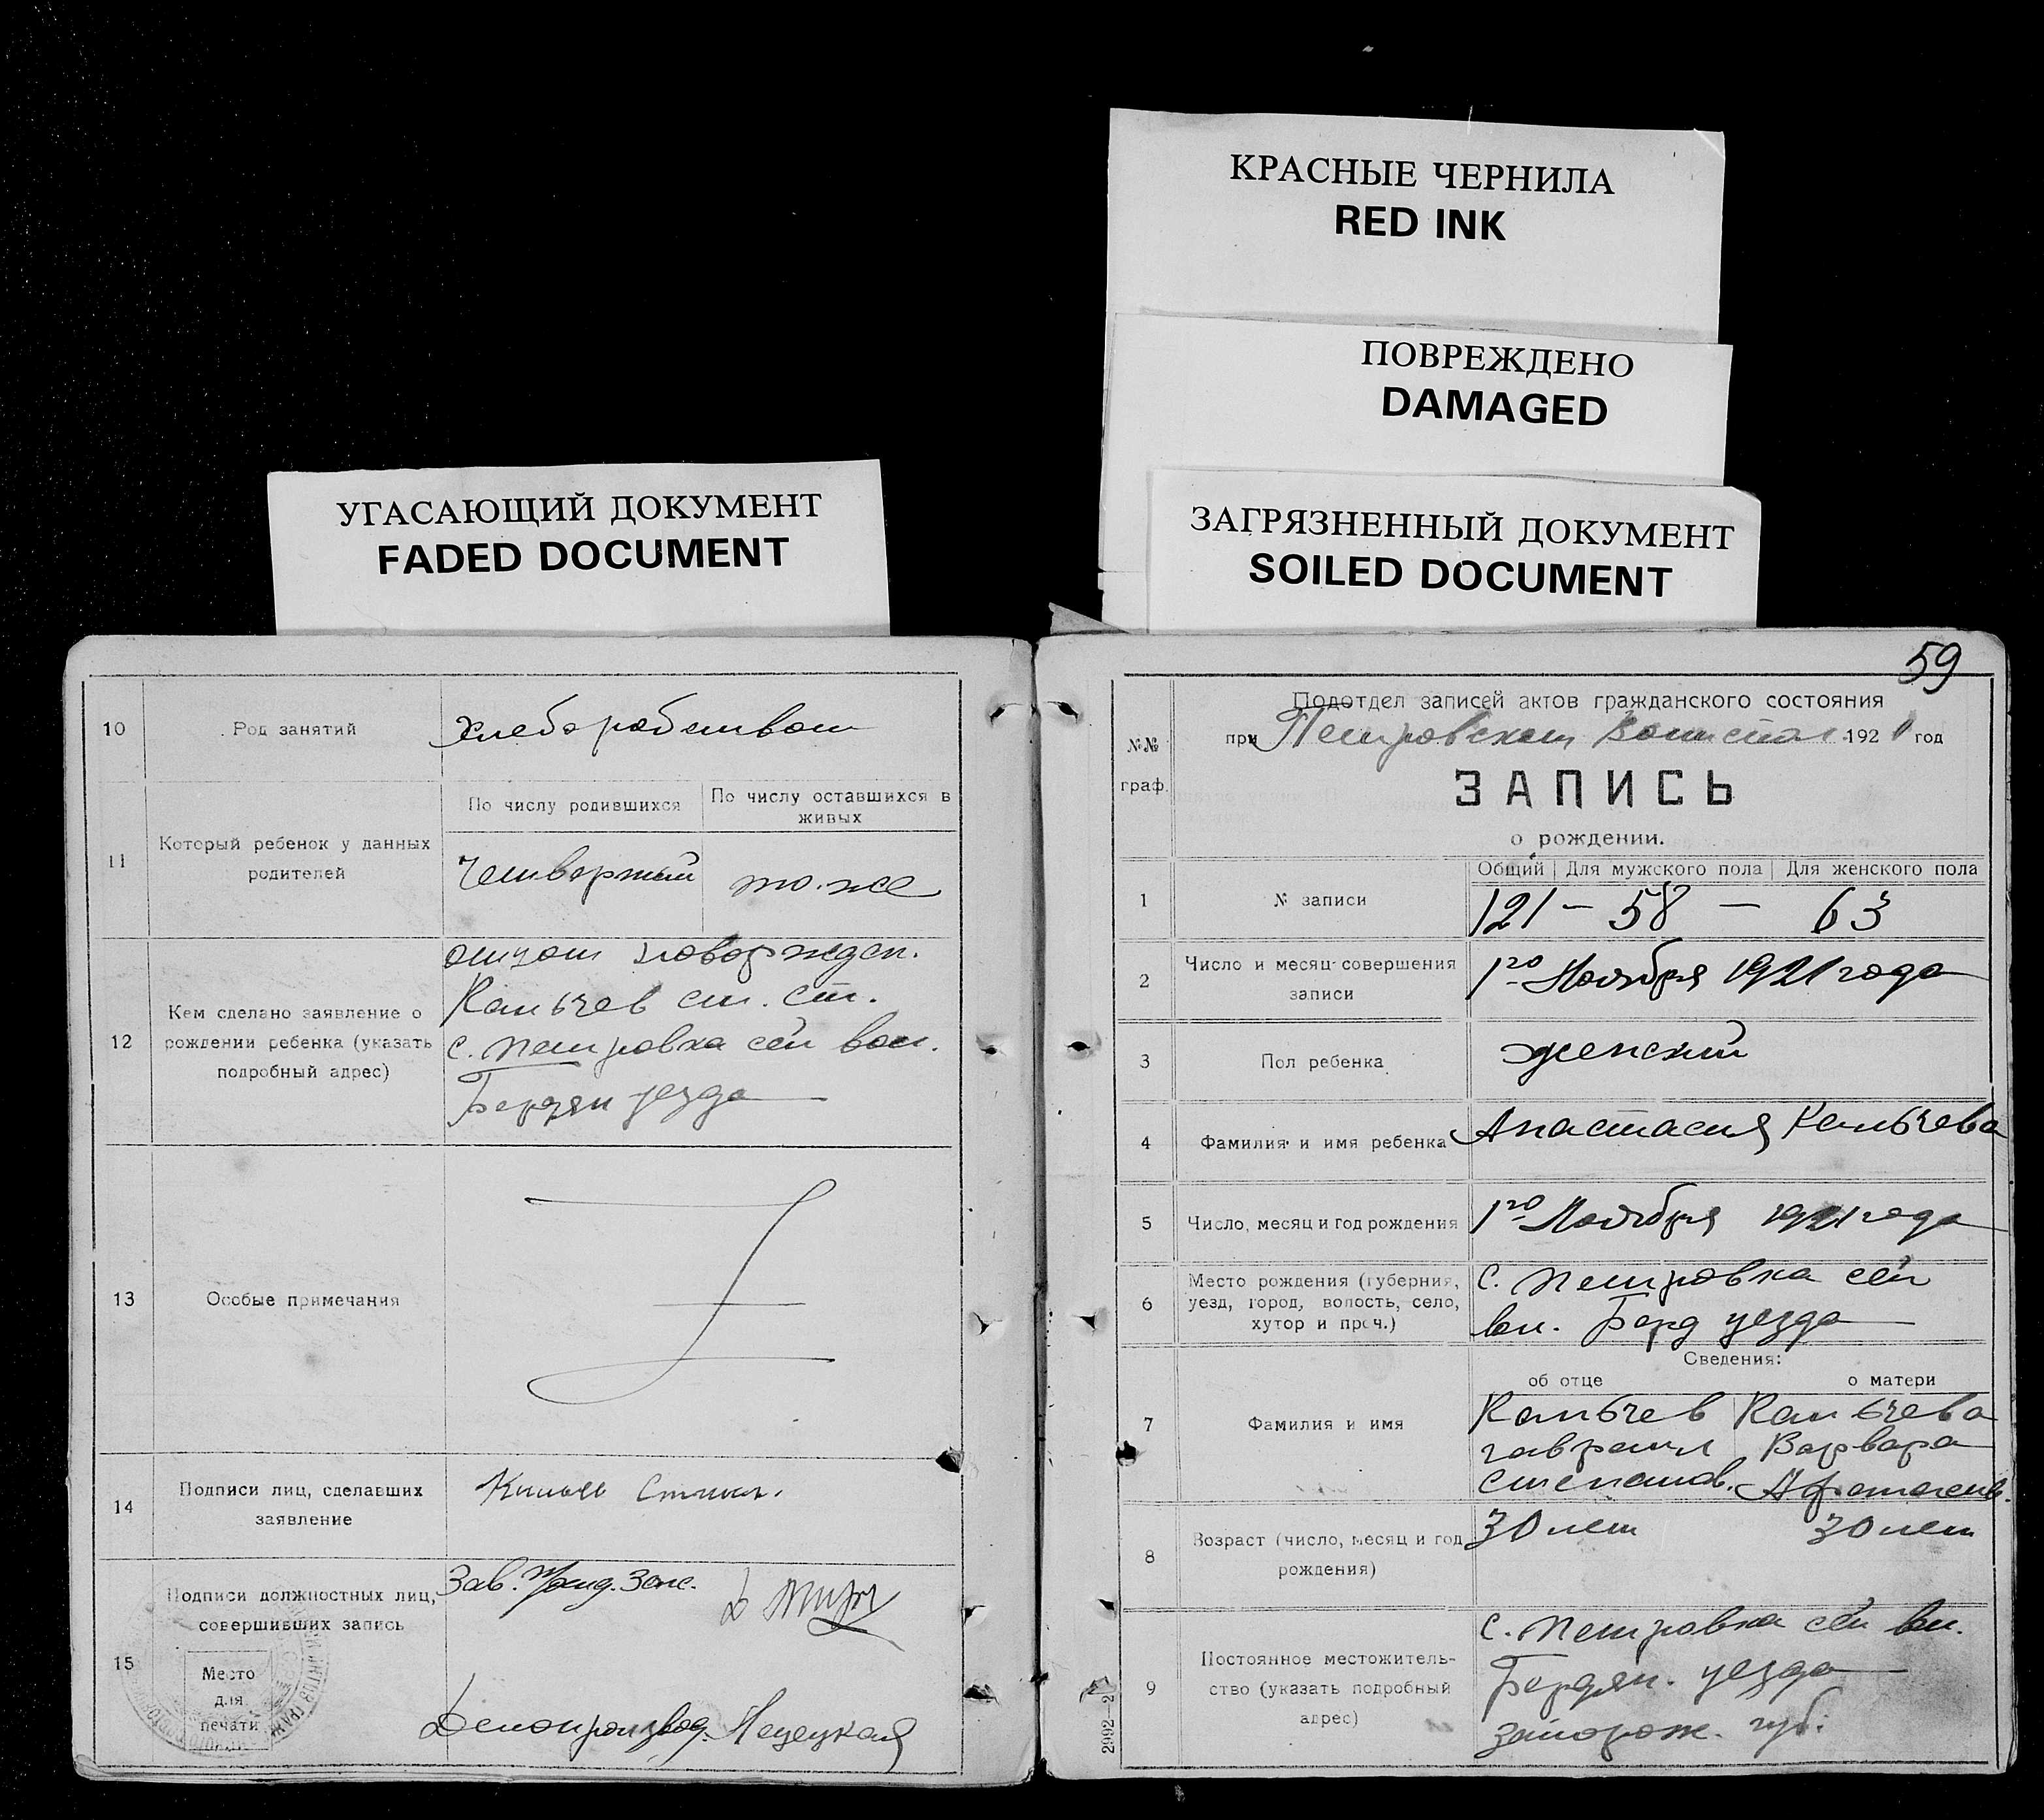 КРАСНЫЕ ЧЕРНИЛА
RED INK
ПОВРЕЖДЕНО
DAMAGED
УГАСАЮЩИЙ ДОКУМЕНТ
FADED DOCUMENT
ЗАГРЯЗНЕННЫЙ ДОКУМЕНТ
SOILED DOCUMENT
10
Род занятий
хлеборобством
11
Который ребенок у данных
родителей
По числу родившихся
По числу оставшихся в
живых
Четвертый
то-же
12
Кем сделано заявление о
рождении ребенка (указать
подробный адрес)
отцом новоржден.
Капычев
с. Петровка сей вол.
Бердян уезда
13
Особые примечания
14
Подписи лиц, сделавших
заявление
15
Подписи должностных лиц,
совершивших запись
Место
для
печати
Зав.
Делопроизвод.
59
№№
граф.
Подотдел записей актов гражданского состояния
при Петровском 1921 год
ЗАПИСЬ
о рождении.
Общий
Для мужского пола
Для женского пола
1
№ записи
121 — 58 — 63
2
Число и месяц совершения
записи
1го Ноября 1921 года
3
Пол ребенка
женский
4
Фамилия и имя ребенка
Анастасия Капычева
5
Число, месяц и год рождения
1го Ноября 1921 года
6
Место рождения (губерния,
уезд, город, волость, село,
хутор и проч.)
с. Петровка сей
вол. Берд уезда
Сведения:
об отце
о матери
7
Фамилия и имя
Капычев
Гавраил
Степанов.
Капычева
Варвара
8
Возраст (число, месяц и год
рождения)
30 лет
30 лет
9
Постоянное местожитель-
ство (указать подробный
адрес)
с. Петровка сей вол.
Бердян. уезда
запорож. губ.
2992—21